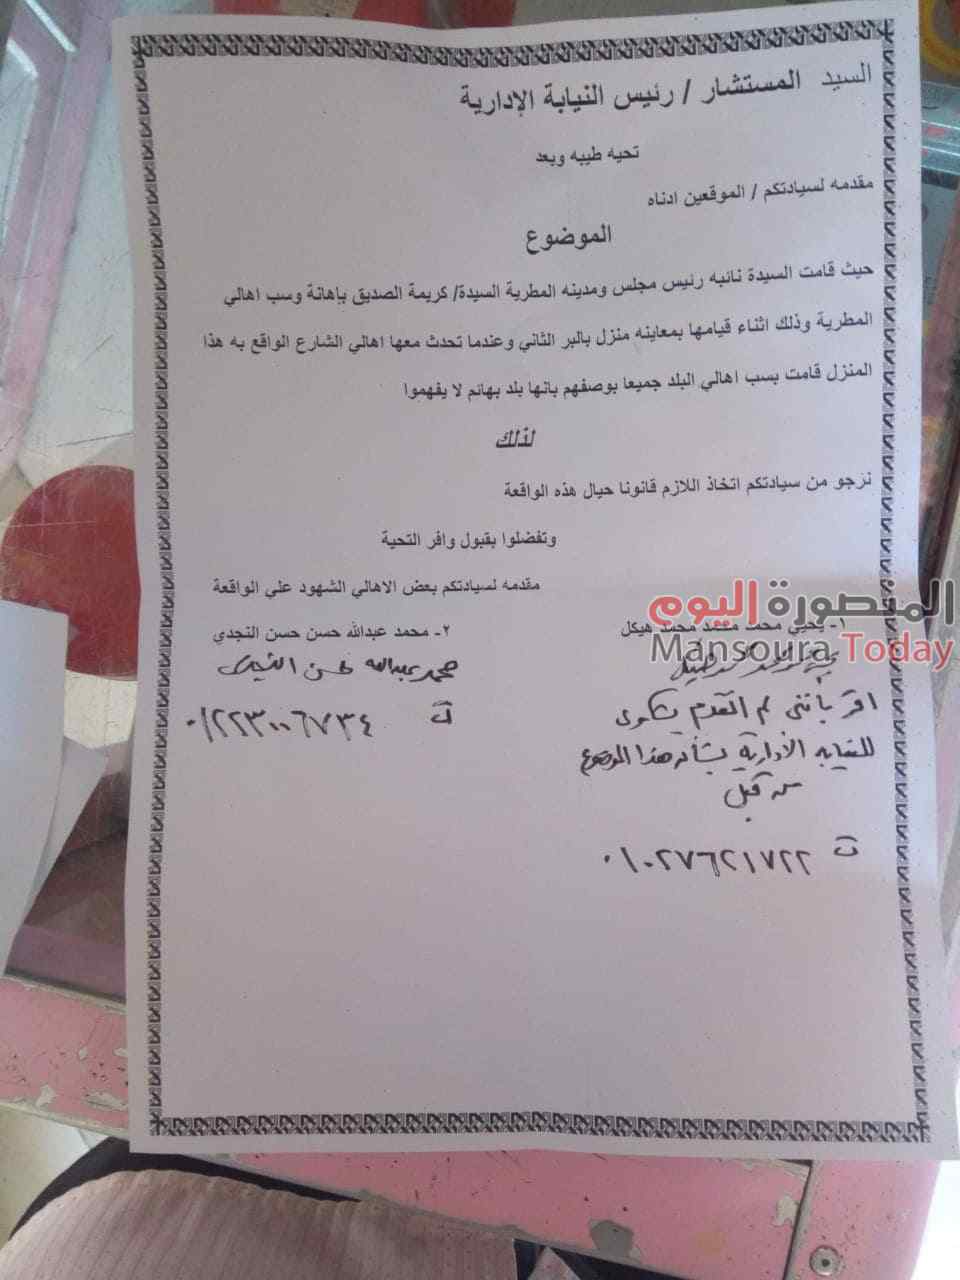 السيد المستشار / رئيس النيابة الإدارية
تحيه طيبه وبعد
مقدمه لسيادتكم / الموقعين ادناه
الموضوع
حيث قامت السيدة نائبه رئيس مجلس ومدينه المطرية السيدة/ كريمة الصديق بإهانة وسب اهالي
المطرية وذلك اثناء قيامها بمعاينه منزل بالبر الثاني وعندما تحدث معها اهالي الشارع الواقع به هذا
المنزل قامت بسب اهالي البلد جميعا بوصفهم بانها بلد بهائم لا يفهموا
لذلك
نرجو من سيادتكم اتخاذ اللازم قانونا حيال هذه الواقعة
وتفضلوا بقبول وافر التحية
مقدمه لسيادتكم بعض الاهالي الشهود علي الواقعة
المنصورة اليوم
Mansoura Today
١- يحيي محمد محمد محمد هيكل
اقر بأننى لم اتقدم بشكوى
للنيابه الأدارية بشأن هذا الموضوع
من قبل
ت ٠١٠٢٧٦٢١٧٢٢
٢- محمد عبدالله حسن حسن النجدي
محمد عبدالله حسن النجدى
ت ٠١٢٢٣٠٠٦٧٣٤